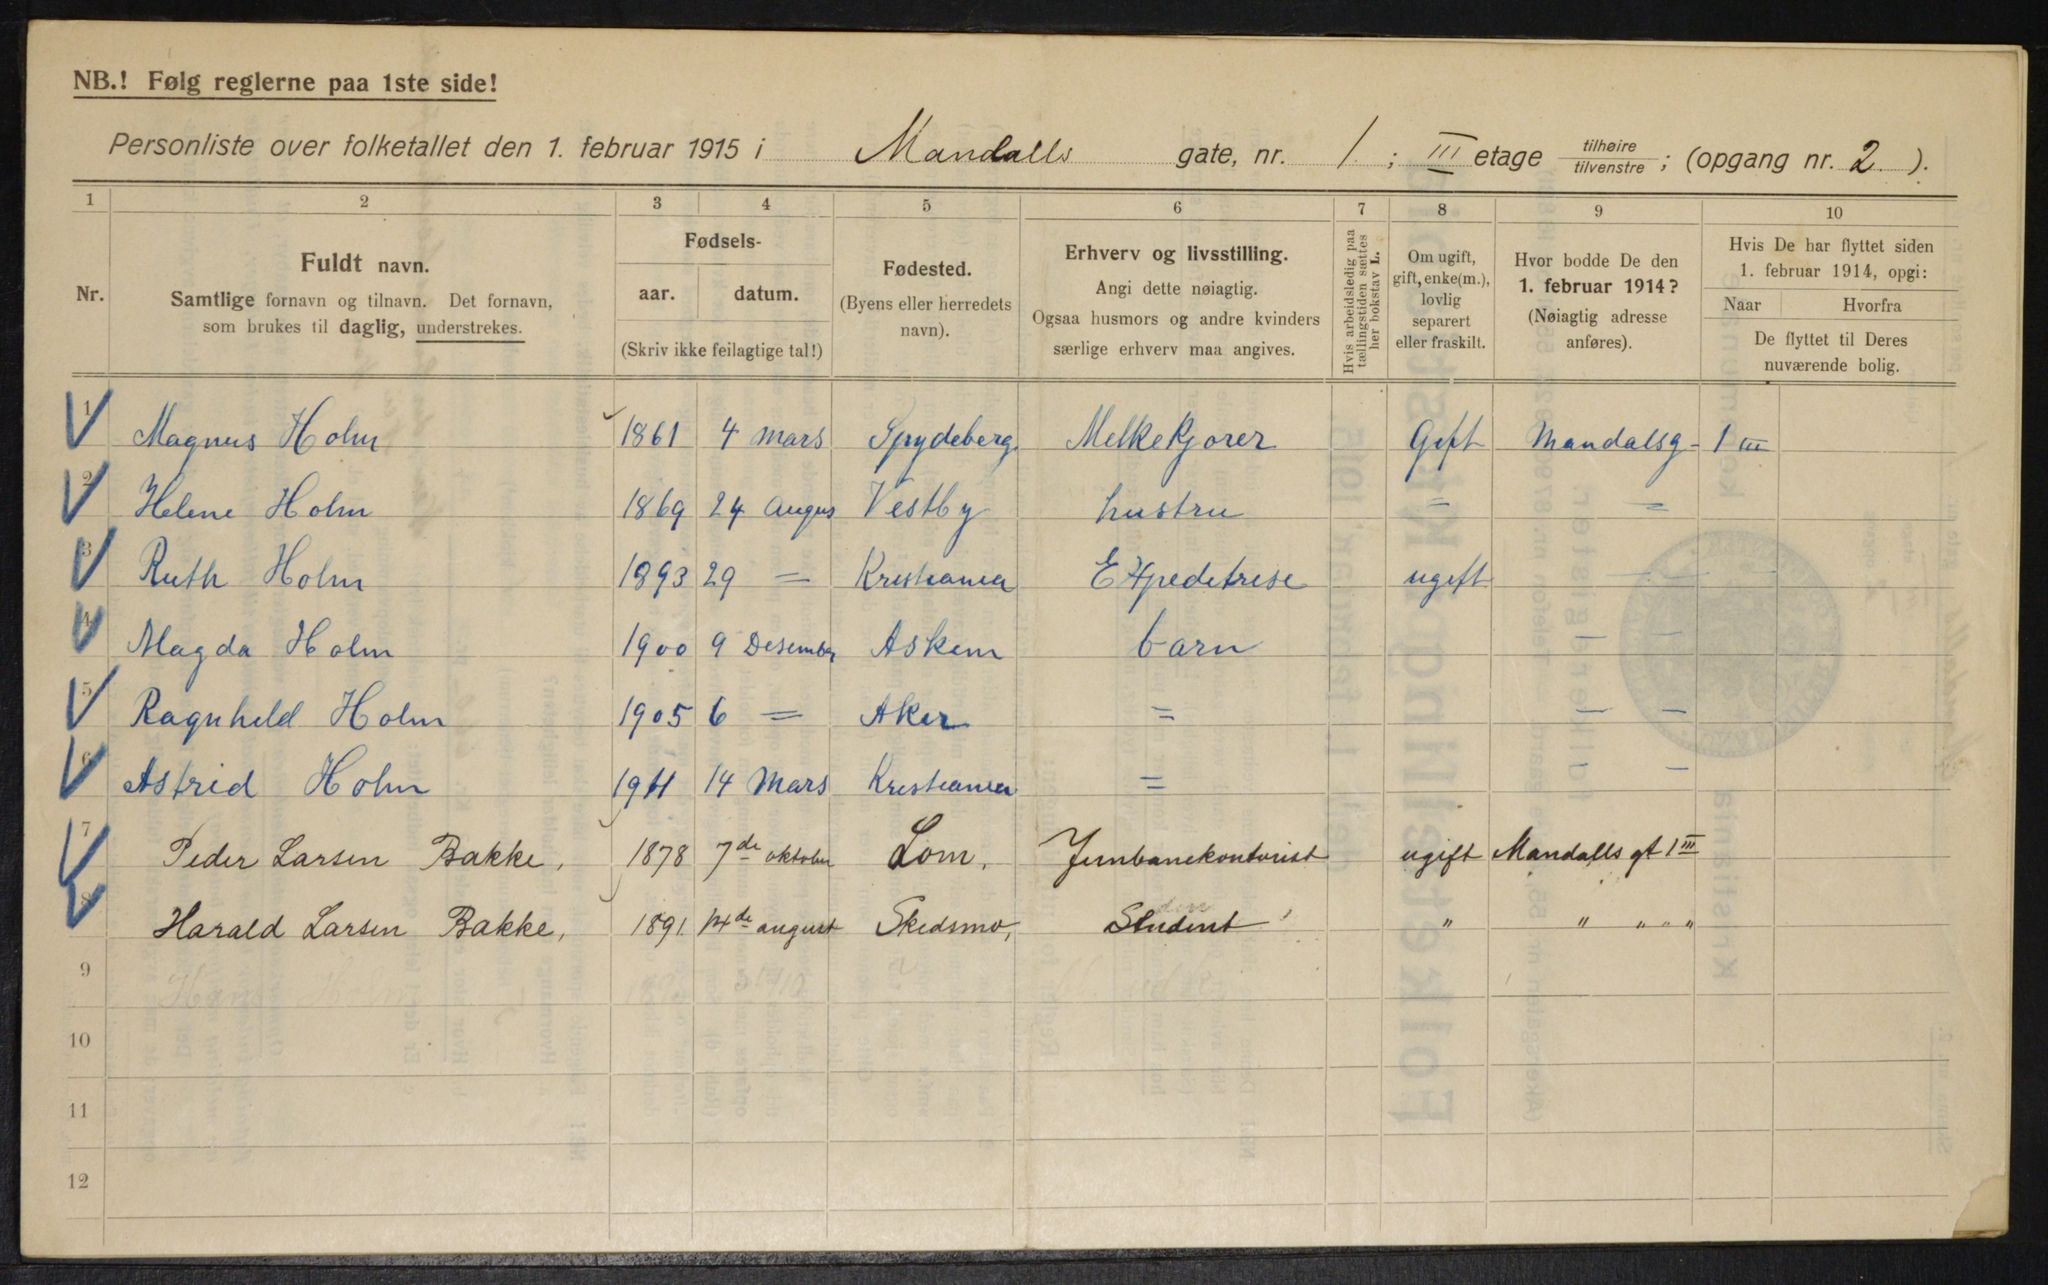 NB.! Følg reglerne paa 1ste side!
Personliste over folketallet den 1. februar 1915 i Mandalls gate, nr. 1. ; III etage tilhøire / tilvenstre ; (opgang nr. 2. ).
1 2 3 4 5 6 7 8 9 10
Nr.
Fuldt navn.
Samtlige fornavn og tilnavn. Det fornavn,
som brukes til daglig, understrekes.
Fødsels-
aar. datum.
(Skriv ikke feilagtige tal!)
Fødested.
(Byens eller herredets
navn).
Erhverv og livsstilling.
Angi dette nøiagtig.
Ogsaa husmors og andre kvinders
særlige erhverv maa angives.
Hvis arbeidsledig paa
tællingstiden sættes
her bokstav L.
Om ugift,
gift, enke(m.),
lovlig
separert
eller fraskilt.
Hvor bodde De den
1. februar 1914?
(Nøiagtig adresse
anføres).
Hvis De har flyttet siden
1. februar 1914, opgi:
Naar Hvorfra
De flyttet til Deres
nuværende bolig.
1 Magnus Holm 1861 4 mars Spydeberg Melkekjorer Gift Mandalsg- 1 III
2 Helene Holm 1869 24 augus Vestby hustru = =
3 Ruth Holm 1893 29 = Kristiania Expeditrise ugift — —
4 Magda Holm 1900 9 Desember Askem barn — —
5 Ragnhild Holm 1905 6 = Aker = — —
6 Astrid Holm 1911 14 Mars Kristiania = — —
7 Peder Larsen Bakke, 1878 7de oktober Lom, Jernbanekontorist ugift Mandalls gt 1 III
8 Harald Larsen Bakke, 1891 14de august Skedsmo, Student " " " " "
9 Holm
10
11
12